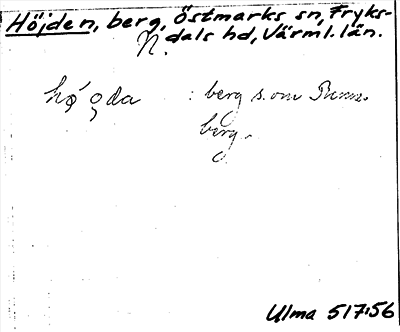 Höjden, berg, Östmarks sn, Fryks-
N. dals hd, Värml. län.
hø´gda : berg s. om
berg.
Ulma 517:56